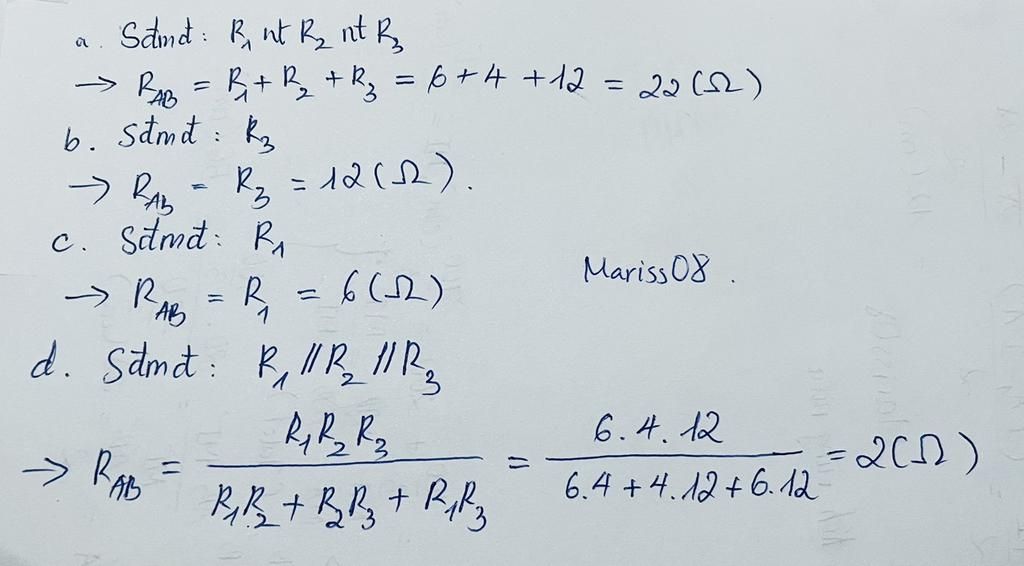 a. Sđmđ: R₁ nt R₂ nt R₃
→ R_AB = R₁ + R₂ + R₃ = 6 + 4 + 12 = 22 (Ω)
b. Sđmđ: R₃
→ R_AB = R₃ = 12 (Ω).
c. Sđmđ: R₁
→ R_AB = R₁ = 6 (Ω)
Mariss08.
d. Sđmđ: R₁ // R₂ // R₃
→ R_AB = R₁R₂R₃ / (R₁R₂ + R₂R₃ + R₁R₃) = 6.4.12 / (6.4 + 4.12 + 6.12) = 2 (Ω)